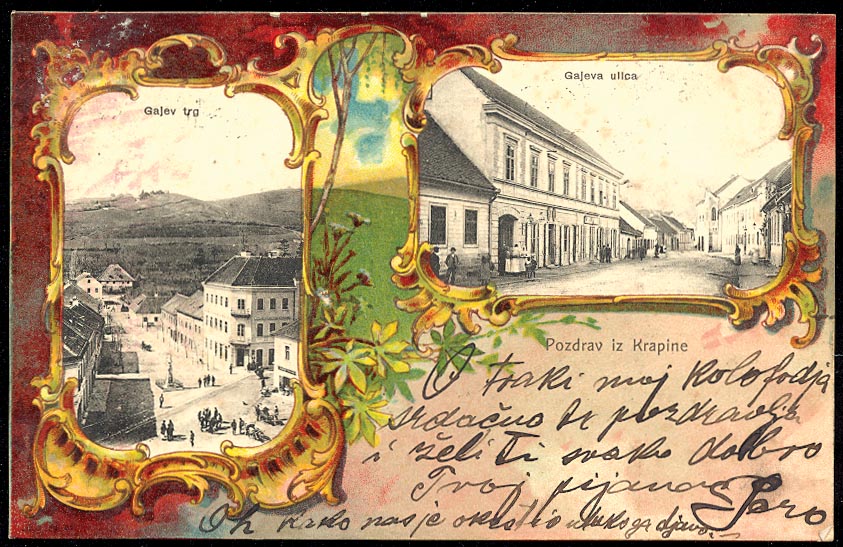 Gajev trg
Gajeva ulica
Pozdrav iz Krapine
moj kolofodja
srdačno te pozdravlja
i želi Ti svako dobro
Tvoj pijanac
Oh kako nas je